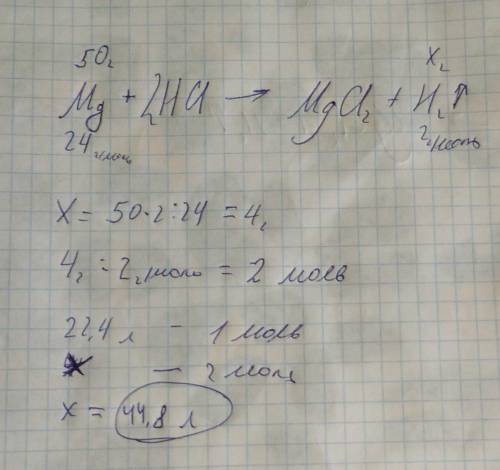 50г xг
Mg + 2HCl → MgCl₂ + H₂↑
24 г/моль 2 г/моль
X = 50·2:24 = 4г
4г : 2 г/моль = 2 моль
22,4 л – 1 моль
x — 2 моль
x = 44,8 л